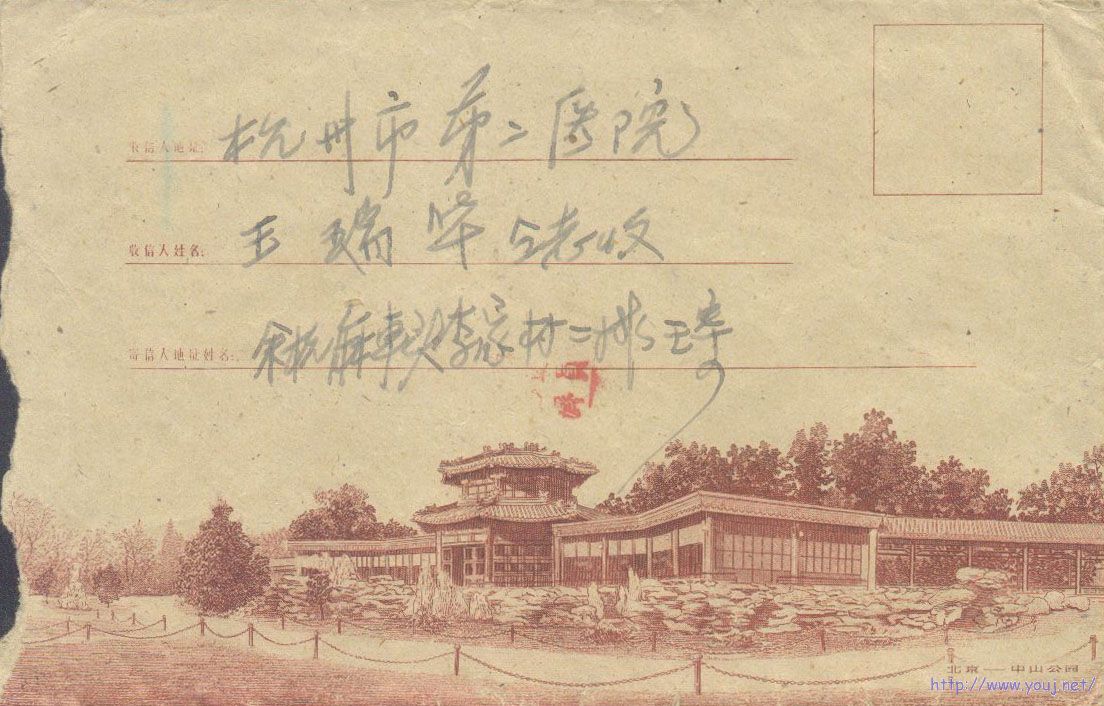 收信人地址: 杭州市第二医院
收信人姓名: 王瑞华 收
寄信人地址姓名: 余杭 李家村二
北京—中山公园
http://www.youj.net/